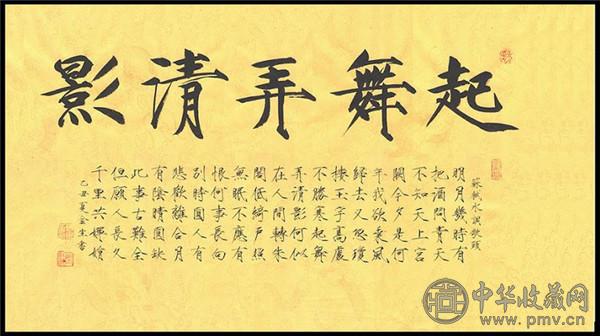 起舞弄清影
蘇軾水調歌頭
明月幾時有
把酒問青天
不知天上宮
闕今夕是何
年我欲乘風
歸去又恐瓊
樓玉宇高處
不勝寒起舞
弄清影何似
在人間轉朱
閣低綺戶照
無眠不應有
恨何事長向
別時圓人有
悲歡離合月
有陰晴圓缺
此事古難全
但願人長久
千里共嬋娟
己丑夏金生書
中华收藏网
www.pmv.cn